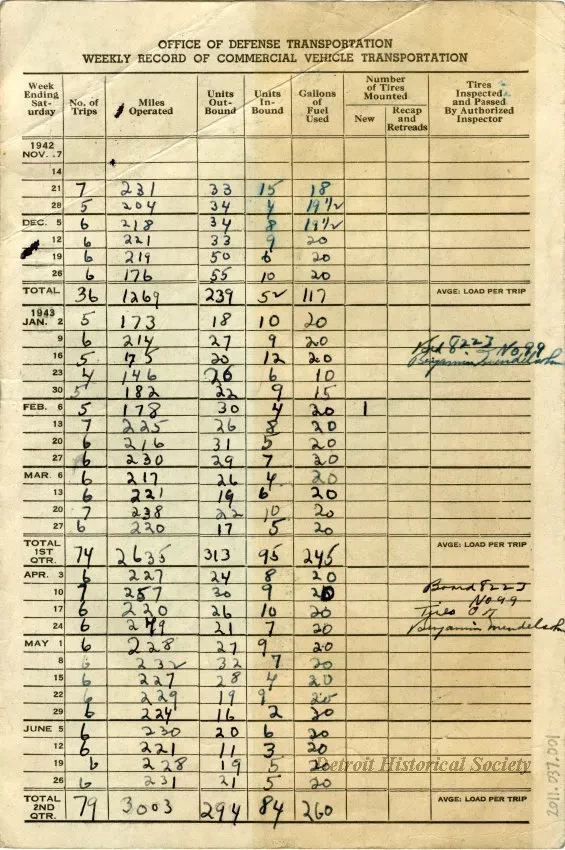 OFFICE OF DEFENSE TRANSPORTATION
WEEKLY RECORD OF COMMERCIAL VEHICLE TRANSPORTATION
Week Ending Saturday No. of Trips Miles Operated Units Out-Bound Units In-Bound Gallons of Fuel Used Number of Tires Mounted New Recap and Retreads Tires Inspected and Passed By Authorized Inspector
1942
NOV. 7
14
21 7 231 33 15 18
28 5 204 34 4 19 1/2
DEC. 5 6 218 34 8 19 1/2
12 6 221 33 9 20
19 6 219 50 6 20
26 6 176 55 10 20
TOTAL 36 1269 239 52 117 AVGE: LOAD PER TRIP
1943
JAN. 2 5 173 18 10 20
9 6 214 27 9 20
16 5 175 20 12 20 8223 No 99
23 4 146 26 6 10 Benjamin Mendelsohn
30 5 182 22 9 15
FEB. 6 5 178 30 4 20 1
13 7 225 26 8 20
20 6 216 31 5 20
27 6 230 29 7 20
MAR. 6 6 217 26 4 20
13 6 221 19 6 20
20 7 238 22 10 20
27 6 220 17 5 20
TOTAL 1ST QTR. 74 2635 313 95 245 AVGE: LOAD PER TRIP
APR. 3 6 227 24 8 20
10 7 257 30 9 20 Board 8223
No 99
17 6 220 26 10 20 Tires OK
24 6 249 21 7 20 Benjamin Mendelsohn
MAY 1 6 228 27 9 20
8 6 232 32 7 20
15 6 227 28 4 20
22 6 229 19 9 20
29 6 224 16 2 20
JUNE 5 6 230 20 6 20
12 6 221 11 3 20
19 6 228 19 5 20
26 6 231 21 5 20
TOTAL 2ND QTR. 79 3003 294 84 260 AVGE: LOAD PER TRIP
Detroit Historical Society
2011.037.001